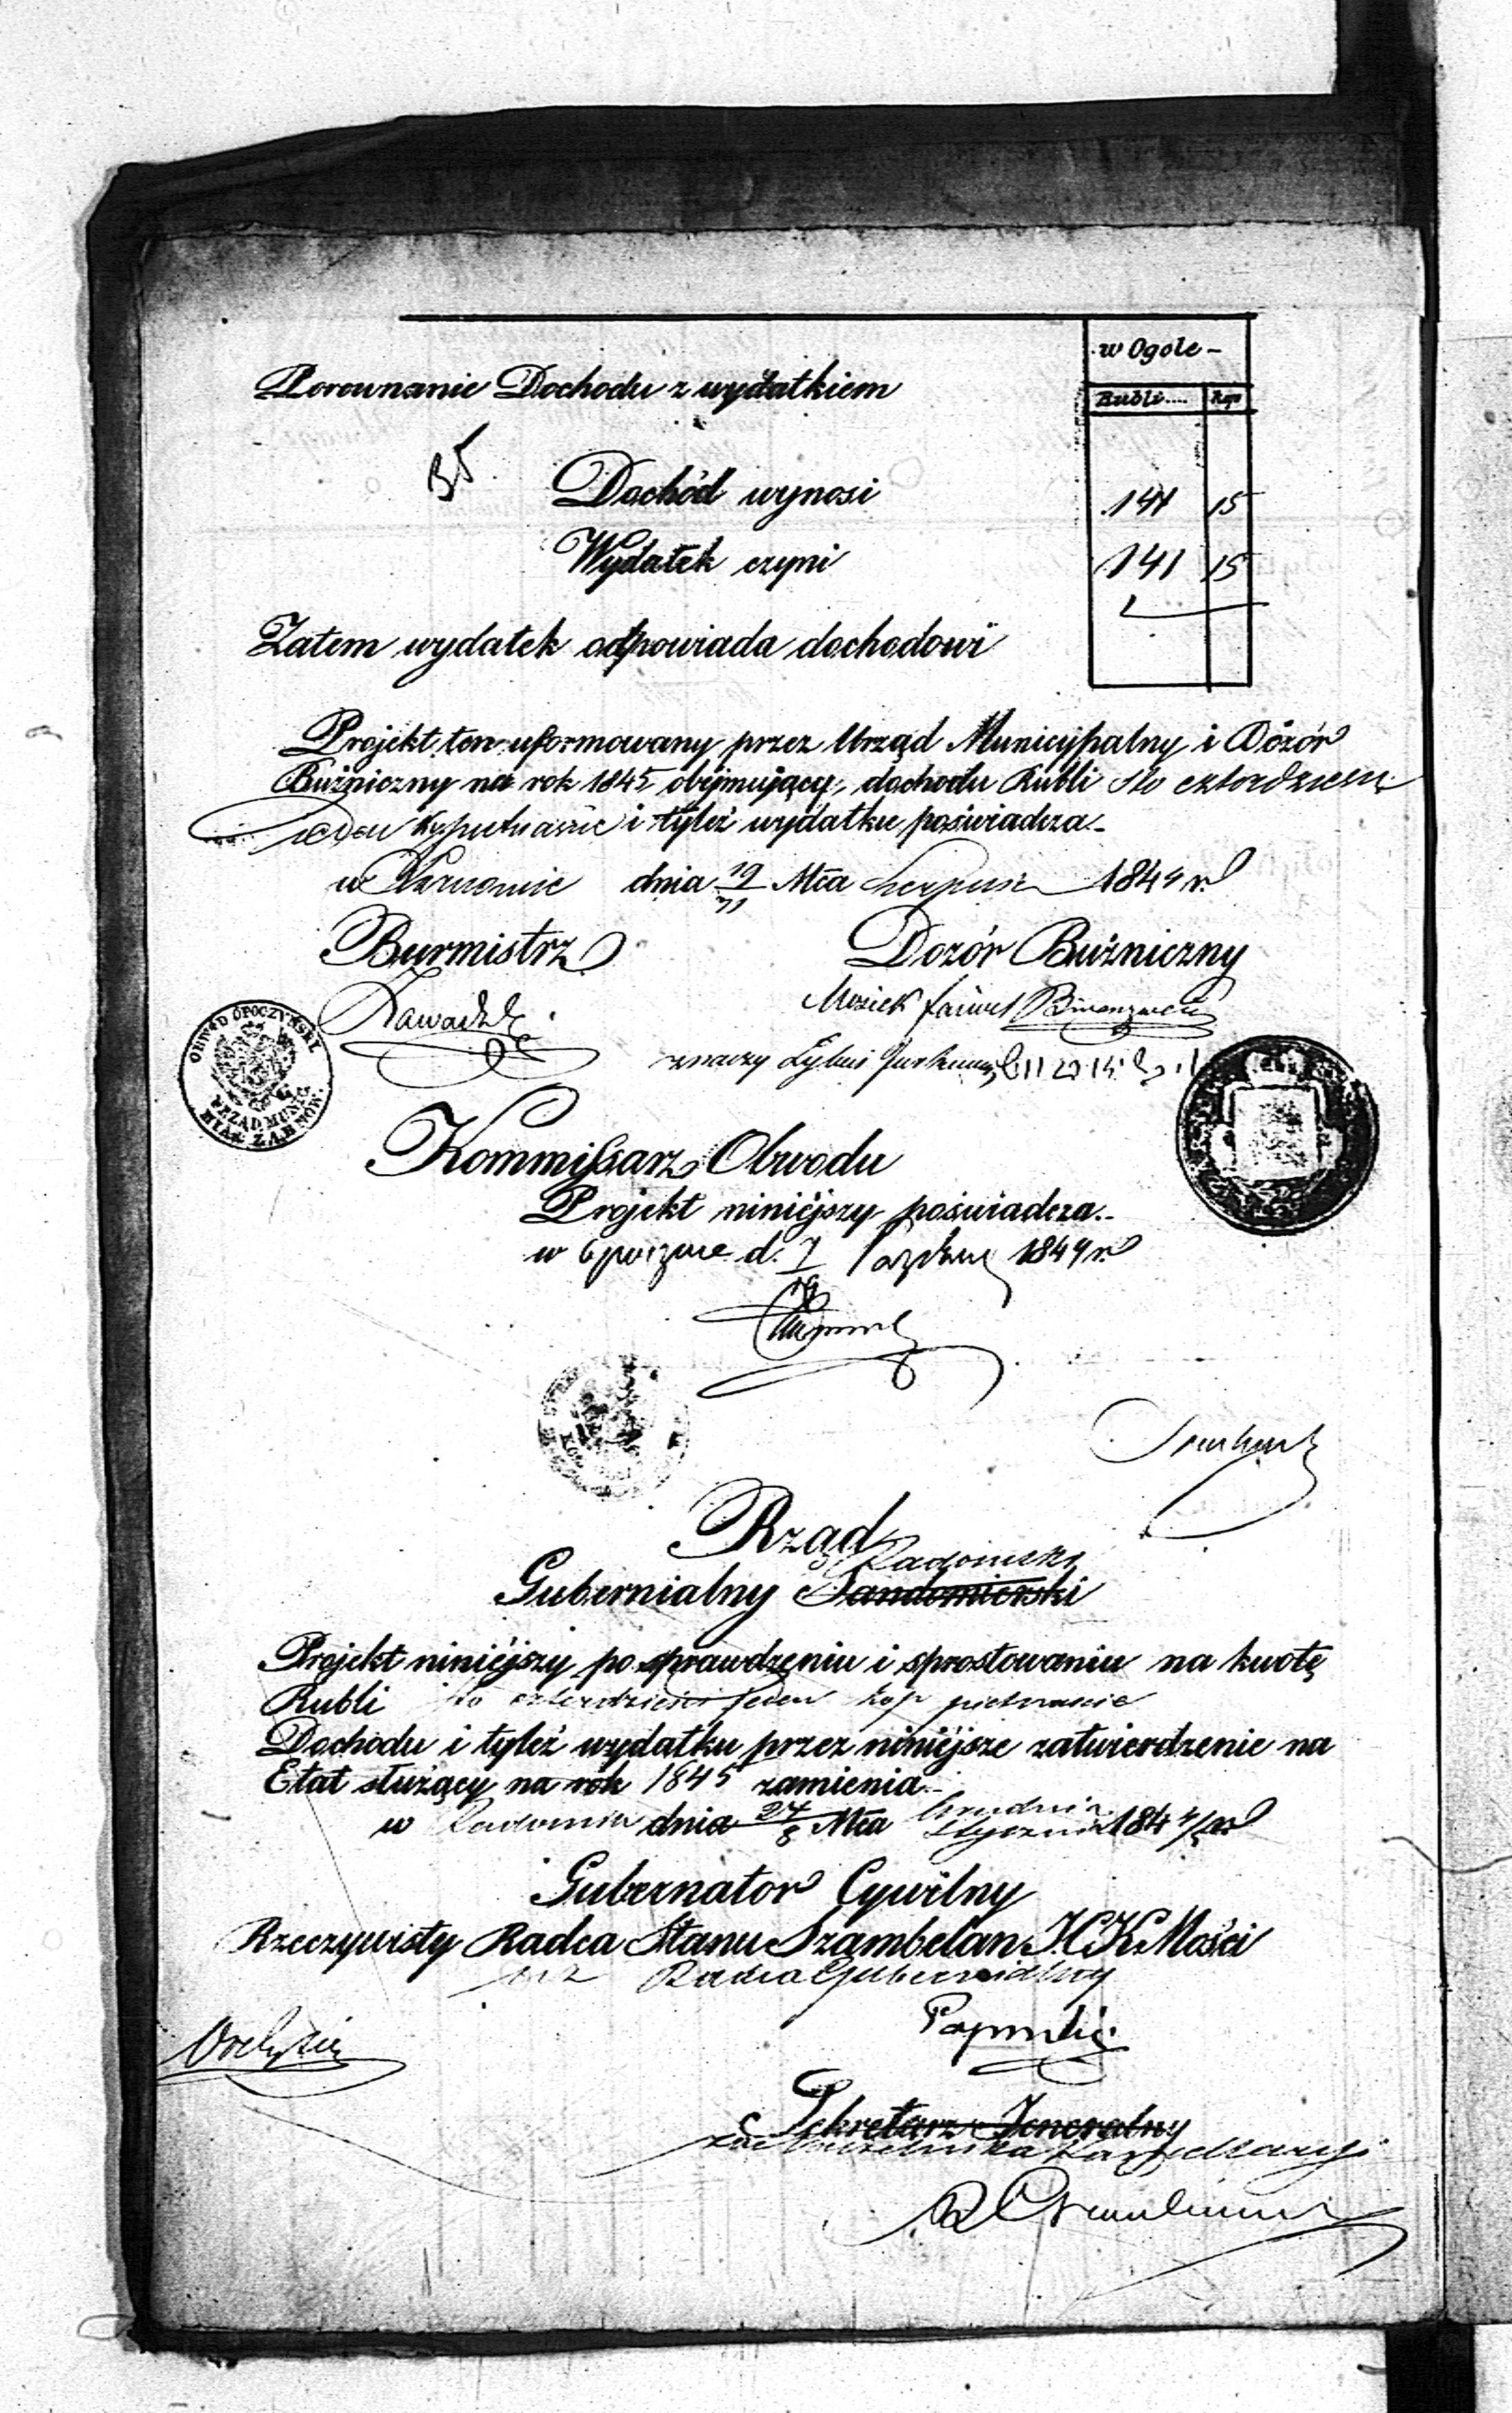 w Ogole -
Porownanie Dochodu z wydatkiem
Rubli.... Kop
Dochód wynosi 141 15
Wydatek czyni 141 15
Zatem wydatek odpowiada dochodowi
Projekt ten uformowany przez Urząd Municypalny i Dózór
Buźniczny na rok 1845 obejmujący, dochodu Rubli sto czterdzieści
jeden kop pietnaście i tyleż wydatku poświadcza.-
w Żarnowie dnia 19/31 Mca Sierpnia 1844 r.
Burmistrz Dozór Buźniczny
Zawadzki
Mosiek
znaczy
OBWÓD OPOCZYŃSKI
URZĄD MUNIC.
MIAS. ŻARNÓW.
Kommissarz Obwodu
Projekt niniejszy poświadcza.-
w Opocznie d. 7 Pazdzier 1844 r.
Rząd
Radomski
Gubernialny Sandomierski
Projekt niniéjszy po sprawdzeniu i sprostowaniu na kwotę
Rubli sto czterdzieści jeden kop pietnaście
Dochodu i tyleż wydatku przez niniéjsze zatwierdzenie na
Etat służący na rok 1845 zamienia.-
w Radomiu dnia 27/8 Mca Grudnia/Stycznia 1844/5 r.
Gubernator Cywilny
Rzeczywisty Radca Stanu Szambelan J.C.K.Mości
wz Radca Gubernialny
Sekretarz Jeneralny
za Naczelnika Kancellaryi